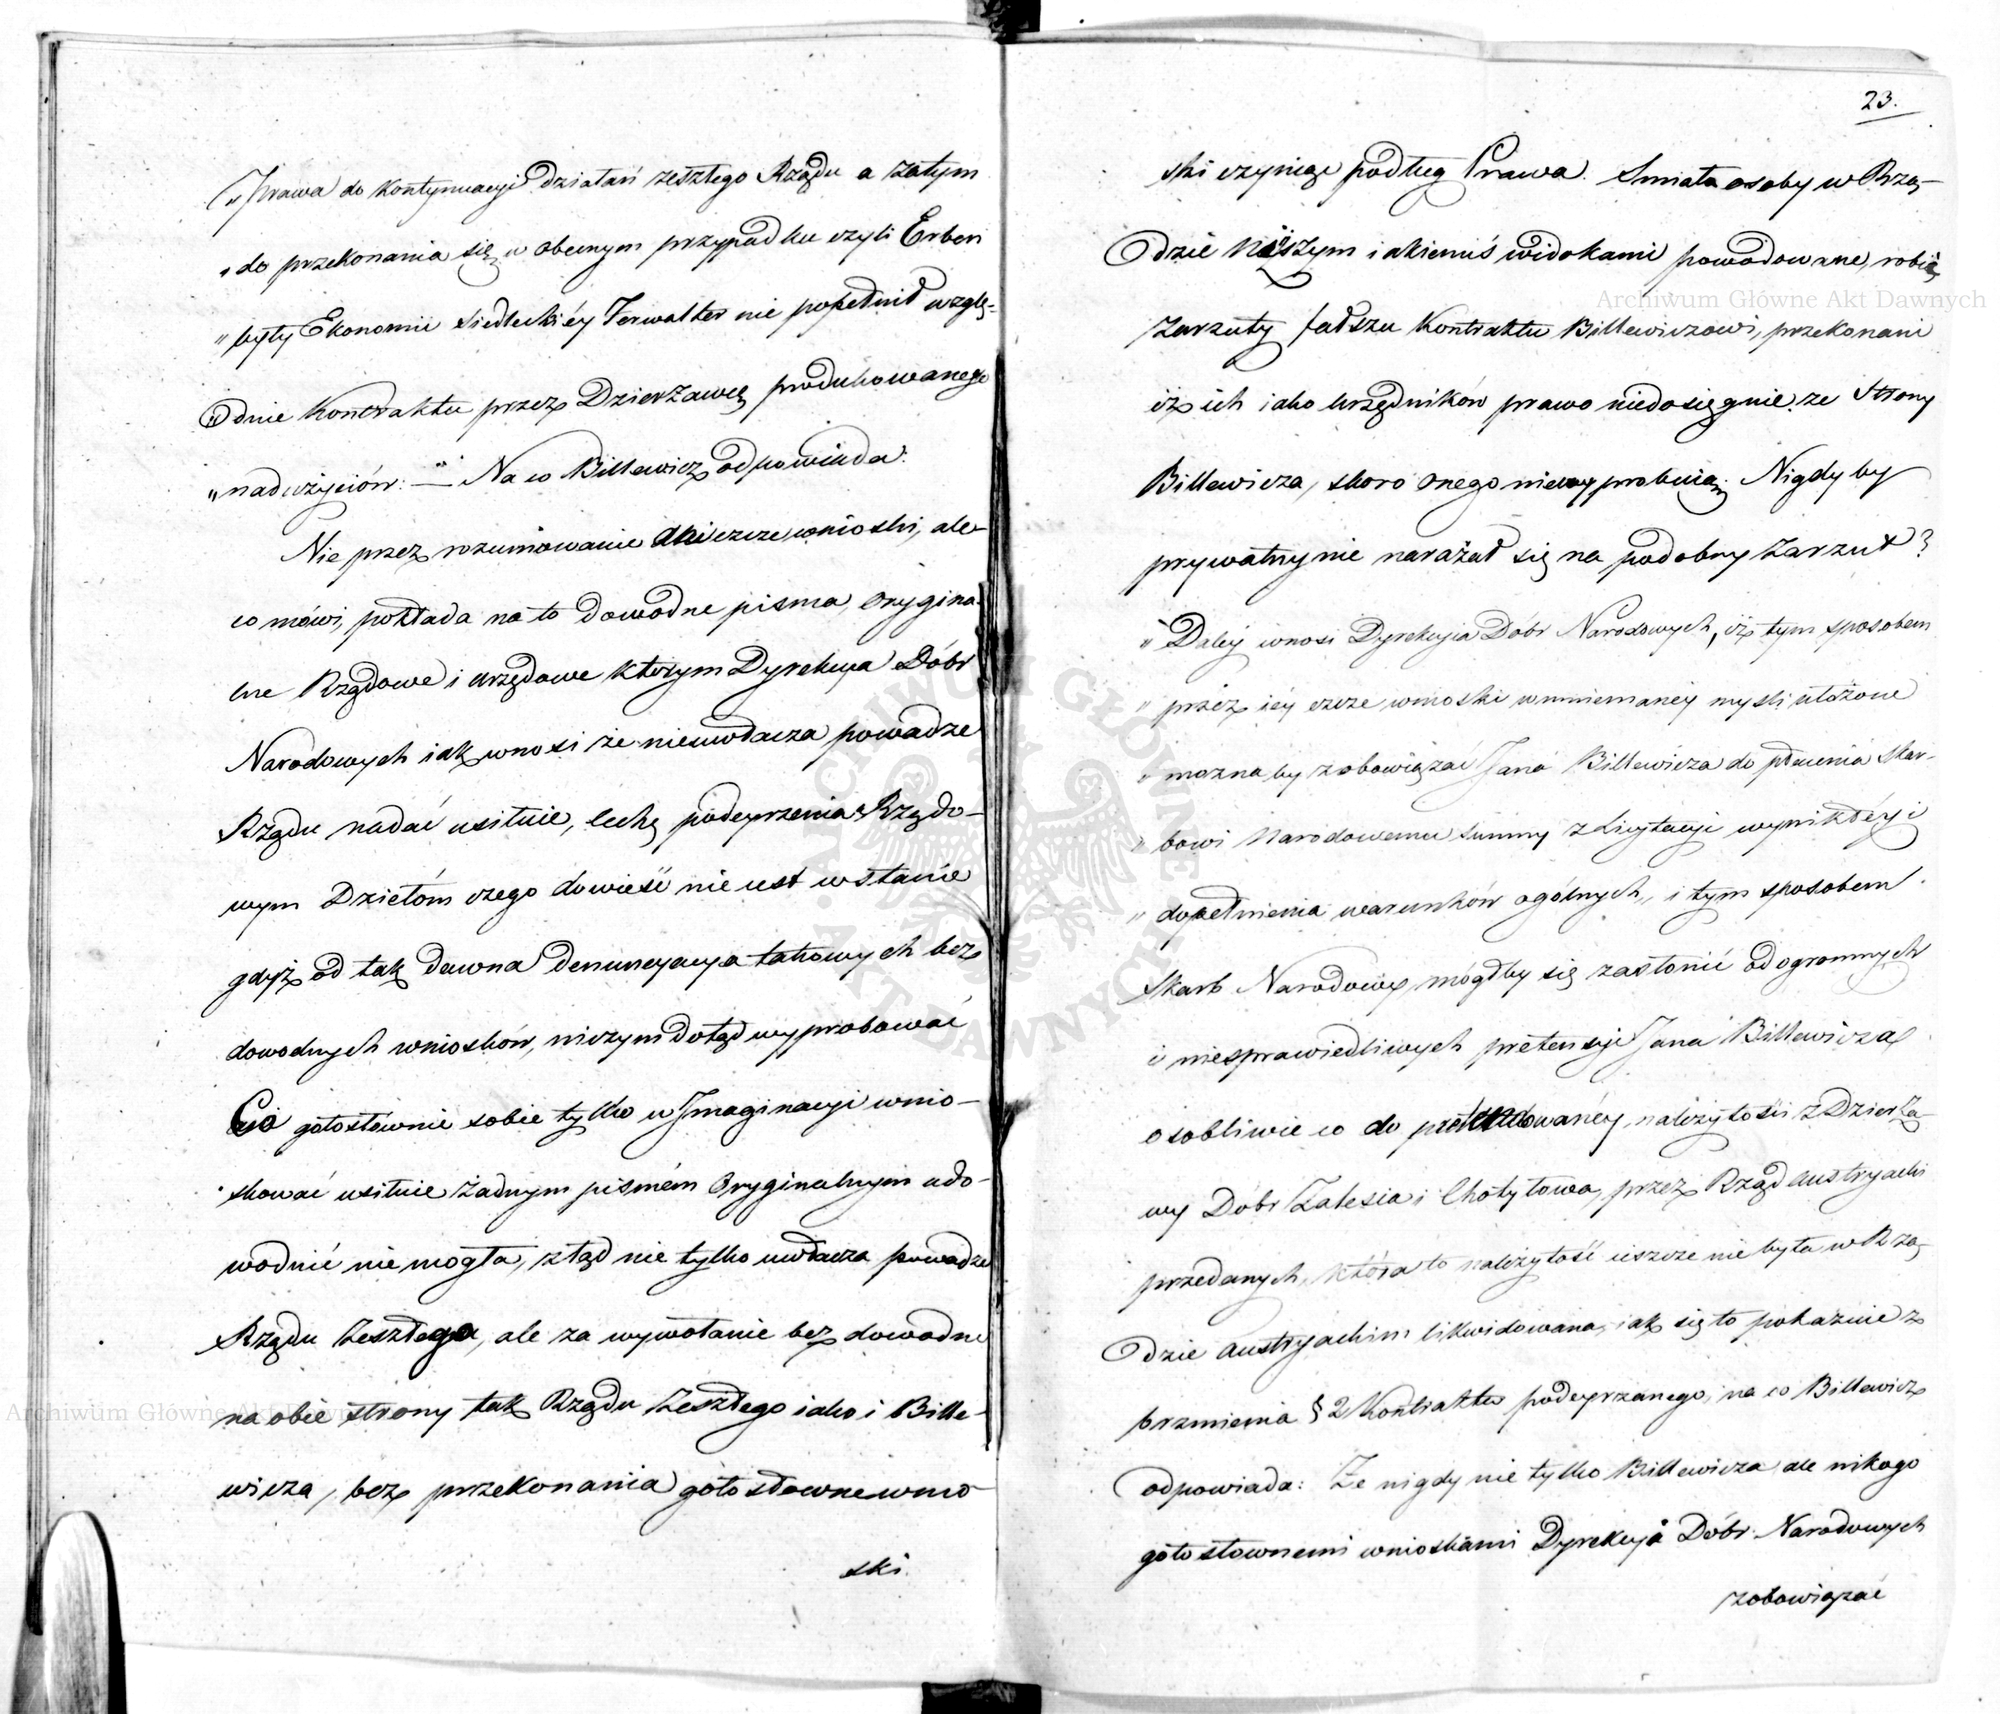 „Prawa do kontynuacyi działań zeszłego Rządu a zatym
„do przekonania się w obecnym przypadku czyli Erben
„były Ekonomii Siedleckiéy Verwalter nie popełnił wzglę-
„dnie Kontraktu przez Dzierżawcę produkowanego
„nadużyciów: — " Na co Billewicz odpowiada:
Nie przez rozumowanie czcze wnioski, ale
co mówi, pokłada na to dowodne pisma, orygina-
lne Rządowe i urzędowe którym Dyrekcya Dóbr
Narodowych iak wnosi że nieuwłacza powadze
Rządu nadać usiłuie, cechę podeyrzenia Rządo-
wym Dziełóm czego dowieść nie iest wstanie
gdyż od tak dawna denuncyacya takowych bez
dowodnych wniosków, niczym dotąd wyprobować
Co gołosłownie sobie tylko w Jmaginacyi wnio-
skować usiłuie żadnym pismém Oryginalnym udo-
wodnić nie mogła, ztąd nie tylko uwłacza powadze
Rządu Zeszłego, ale za wywołanie bez dowodne
na obie strony tak Rządu Zeszłego iako i Bille-
wicza, bez przekonania gołosłowne wnio-
ski.
23.
ski czyniąc podług Prawa. Smiała osoby w Rzą-
dzie Niższym iakiemiś widokami powodowane, robią
Zarzuty fałszu Kontraktu Billewiczowi, przekonani
iż ich iako urzędników prawo niedosięgnie ze Strony
Billewicza, skoro onego niewyprobuią. Nigdy by
prywatny nie narażał się na podobny Zarzut?
„Daléy wnosi Dyrekcyia Dóbr Narodowych, iż tym sposobem
„przez iéy czcze wnioski wmniemanéy myśli ułożone
„możnaby zobowiązać Jana Billewicza do płacenia Skar-
„bowi Narodowemu Summy z Licytacyi wynikłéy i
„dopełnienia warunków ogólnych„ i tym sposobem
Skarb Narodowy mógłby się zasłonić od ogromnych
i niesprawiedliwych pretensyi Jana Billewicza
osobliwie co do pretendowanéy należytości z Dzierża-
wy Dóbr Zalesia i Chotyłowa, przez Rząd Austryacki
przedanych, która to należytość ieszcze nie była w Rzą-
dzie Austryackim likwidowana, iak się to pokazuie z
brzmienia § 2 Kontraktu podeyrzanego, na co Billewicz
odpowiada: Że nigdy nie tylko Billewicza ale nikogo
gołosłownemi wnioskami Dyrekcyia Dóbr Narodowych
zobowiązać